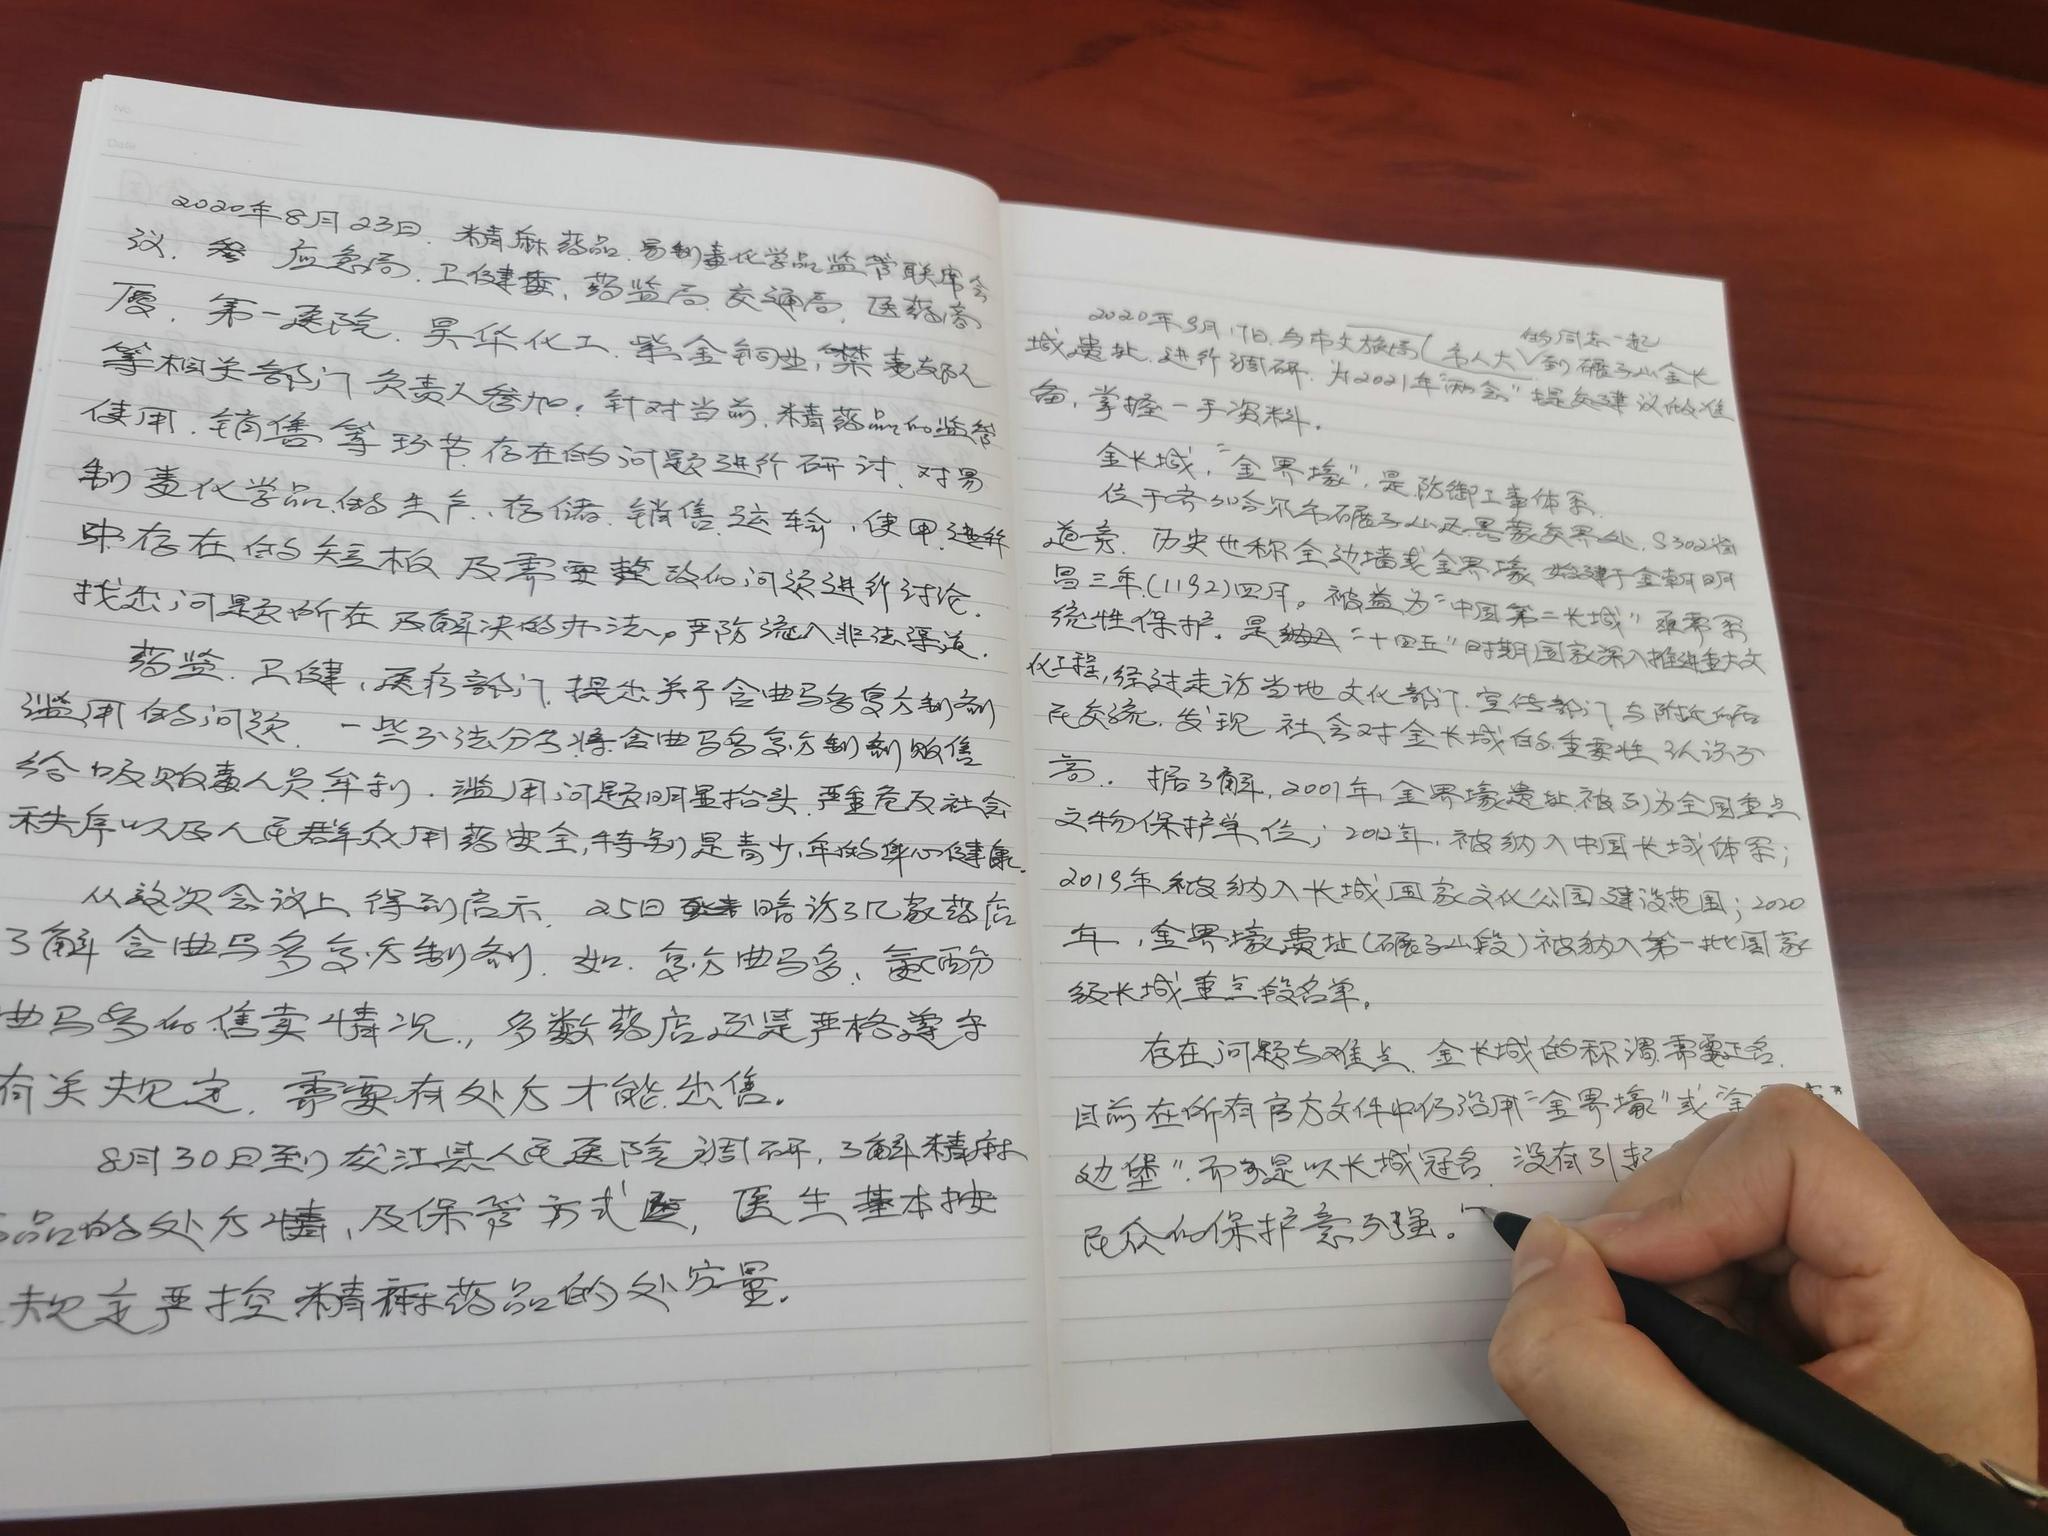 No.
Date
2020年8月23日、精麻药品、易制毒化学品监管联席会
议、应急局、卫健委、药监局、交通局、医药商
厦、第一医院、昊华化工、紫金铜业，禁毒支队
等相关部门负责人参加。针对当前，精药品的监管
使用、销售等环节存在的问题进行研讨，对易
制毒化学品的生产、存储、销售、运输，使用
中存在的短板及需要整改的问题进行讨论，
找出问题所在及解决的办法，严防流入非法渠道。
药监、卫健，医疗部门提出关于含曲马多复方制剂
滥用的问题，一些不法分子将含曲马多复方制剂贩售
给吸贩毒人员牟利，滥用问题明显抬头，严重危及社会
秩序以及人民群众用药安全，特别是青少年的身心健康。
从这次会议上得到启示，25日暗访了几家药店
了解含曲马多复方制剂，如：复方曲马多、氨酚
曲马多的售卖情况，多数药店还是严格遵守
有关规定，需要有处方才能出售。
8月30日到龙江县人民医院调研，了解精麻
品的处方情，及保管方式，医生基本按
规定严控精麻药品的处方量。
2020年9月17日，与市文旅局(市人大)的同志一起到碾子山金长
城遗址，进行调研，为2021年"两会"提交建议做准
备，掌握一手资料。
金长城，"金界壕"，是防御工事体系，
位于齐齐哈尔市碾子山区黑蒙交界处，S302省
道旁，历史也称金边墙或金界壕，始建于金朝明
昌三年(1192)四月。被益为"中国第二长城"亟需系
统性保护，是"十四五"时期国家深入推进重大文
化工程，经过走访当地文化部门、宣传部门与附近居
民交流，发现社会对金长城的重要性认识不
高。据了解，2001年，金界壕遗址被列为全国重点
文物保护单位；2012年，被纳入中国长城体系；
2019年被纳入长城国家文化公园建设范围；2020
年，金界壕遗址(碾子山段)被纳入第一批国家
级长城重点段名单。
存在问题与难点，金长城的称谓需要正名，
目前在所有官方文件中仍沿用"金界壕"或"金
边堡"而不是以长城冠名，没有引起
民众的保护意不强。